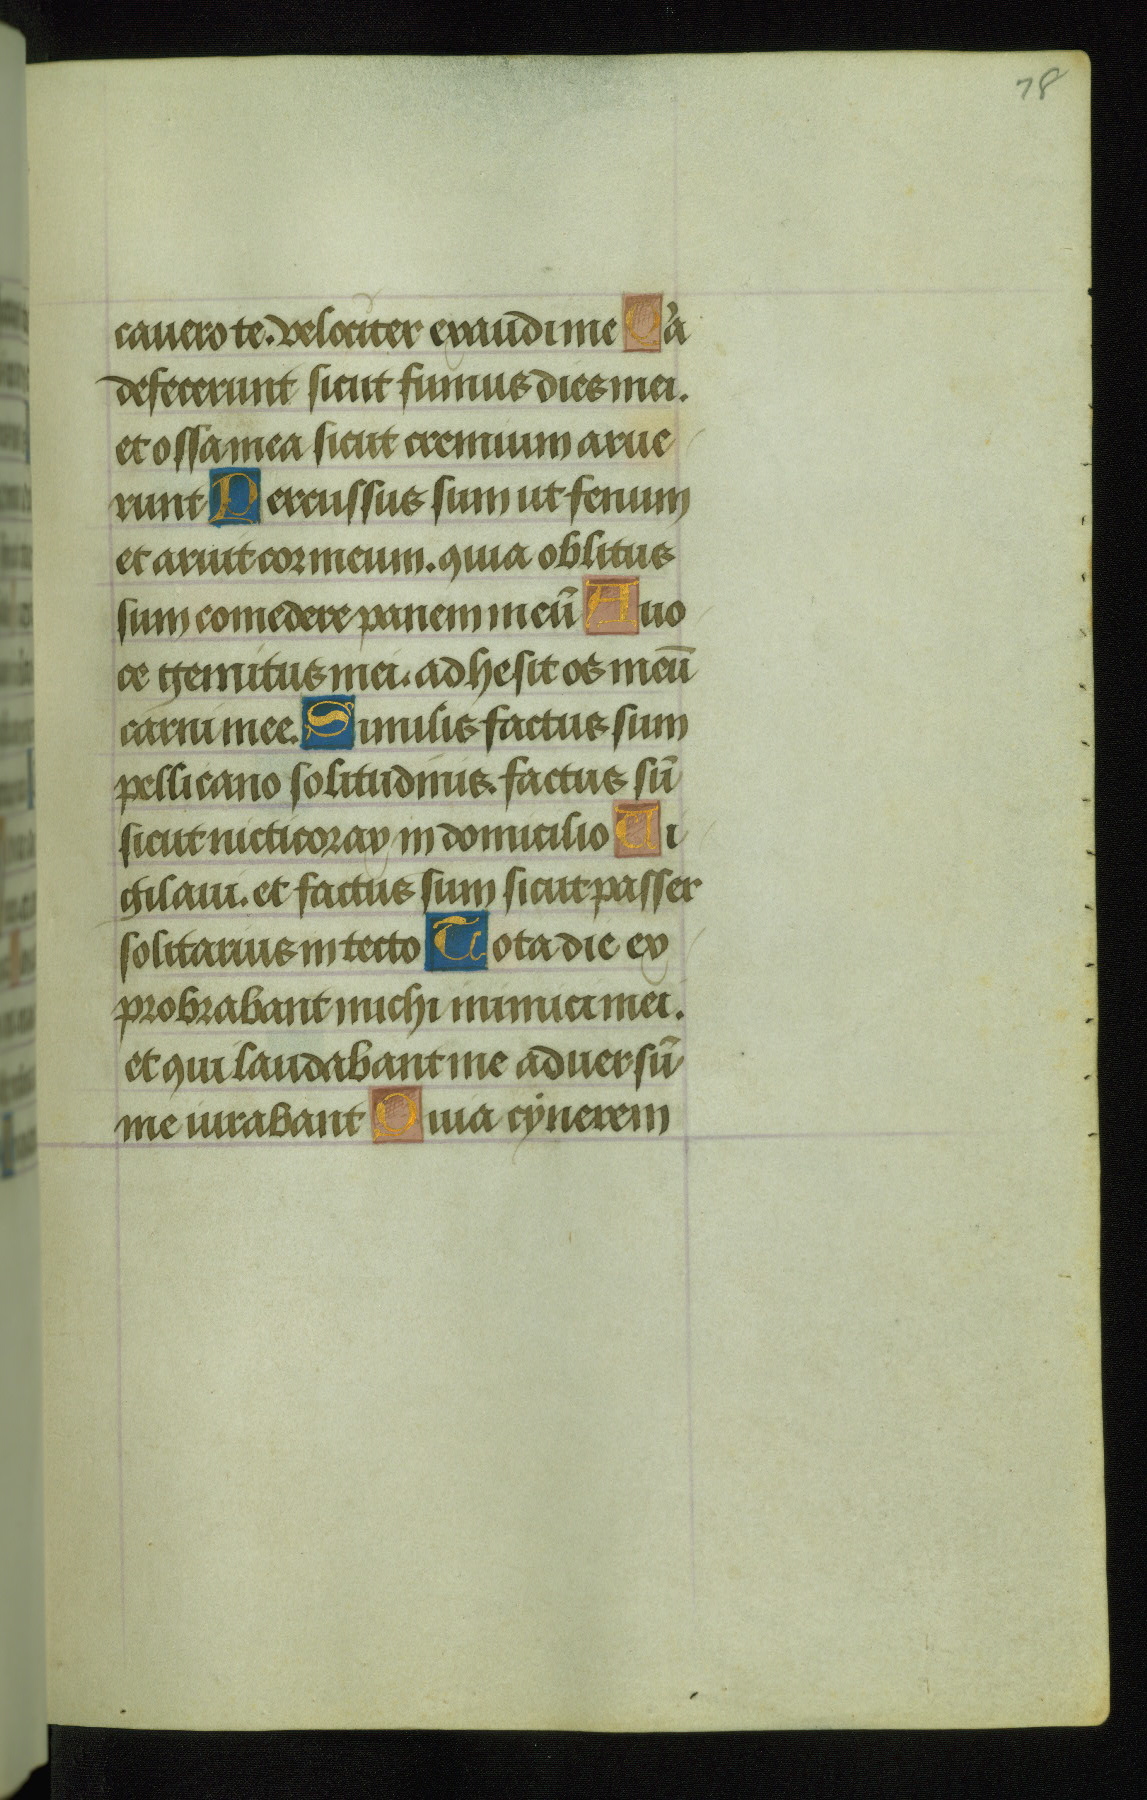 78
cavero te. velociter exaudi me Qa
defecerunt sicut fumus dies mei.
et ossa mea sicut cremium arue
runt Percussus sum ut fenum
et aruit cor meum. quia oblitus
sum comedere panem meū A uo
ce gemitus mei. adhesit os meū
carni mee. Similis factus sum
pellicano solitudinis. factus sū
sicut nicticorax in domicilio Ui
gilaui. et factus sum sicut passer
solitarius in tecto Tota die ex
probrabant michi inimici mei.
et qui laudabant me adversū
me iurabant Quia cẏnerem